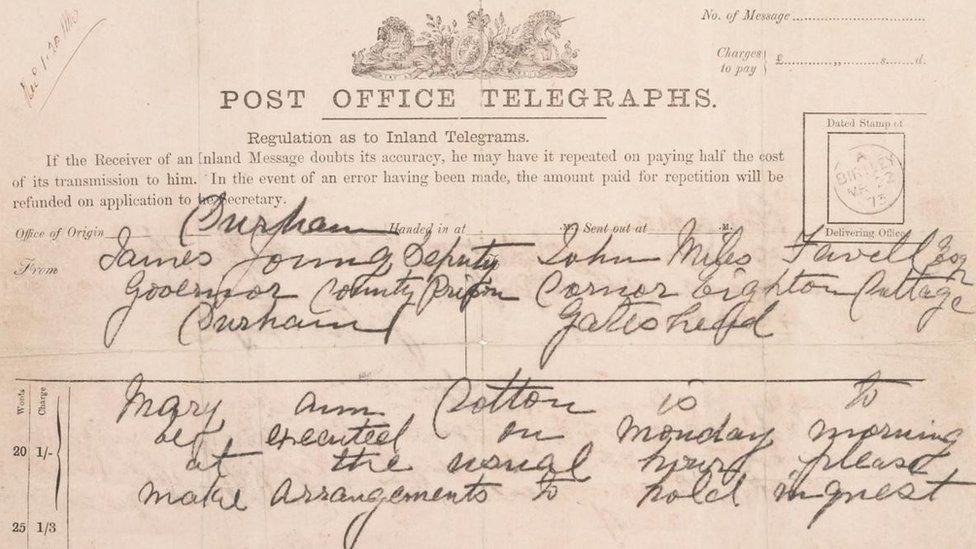 Rec 1.20
No. of Message
Charges to pay } £ „ s. d.
POST OFFICE TELEGRAPHS.
Regulation as to Inland Telegrams.
If the Receiver of an Inland Message doubts its accuracy, he may have it repeated on paying half the cost
of its transmission to him. In the event of an error having been made, the amount paid for repetition will be
refunded on application to the Secretary.
Dated Stamp of
A
BIRTLEY
73
Delivering Office
Office of Origin Durham Handed in at .M. Sent out at .M.
From James Young Deputy
Governor County Prison
Durham
John Miles Favell Esq
Cornor Eighton Cottage
Gateshead
Words Charge
20 1/-
25 1/3
Mary ann Cotton is to
be executed on Monday morning
at the usual hour please
make arrangements to hold inquest